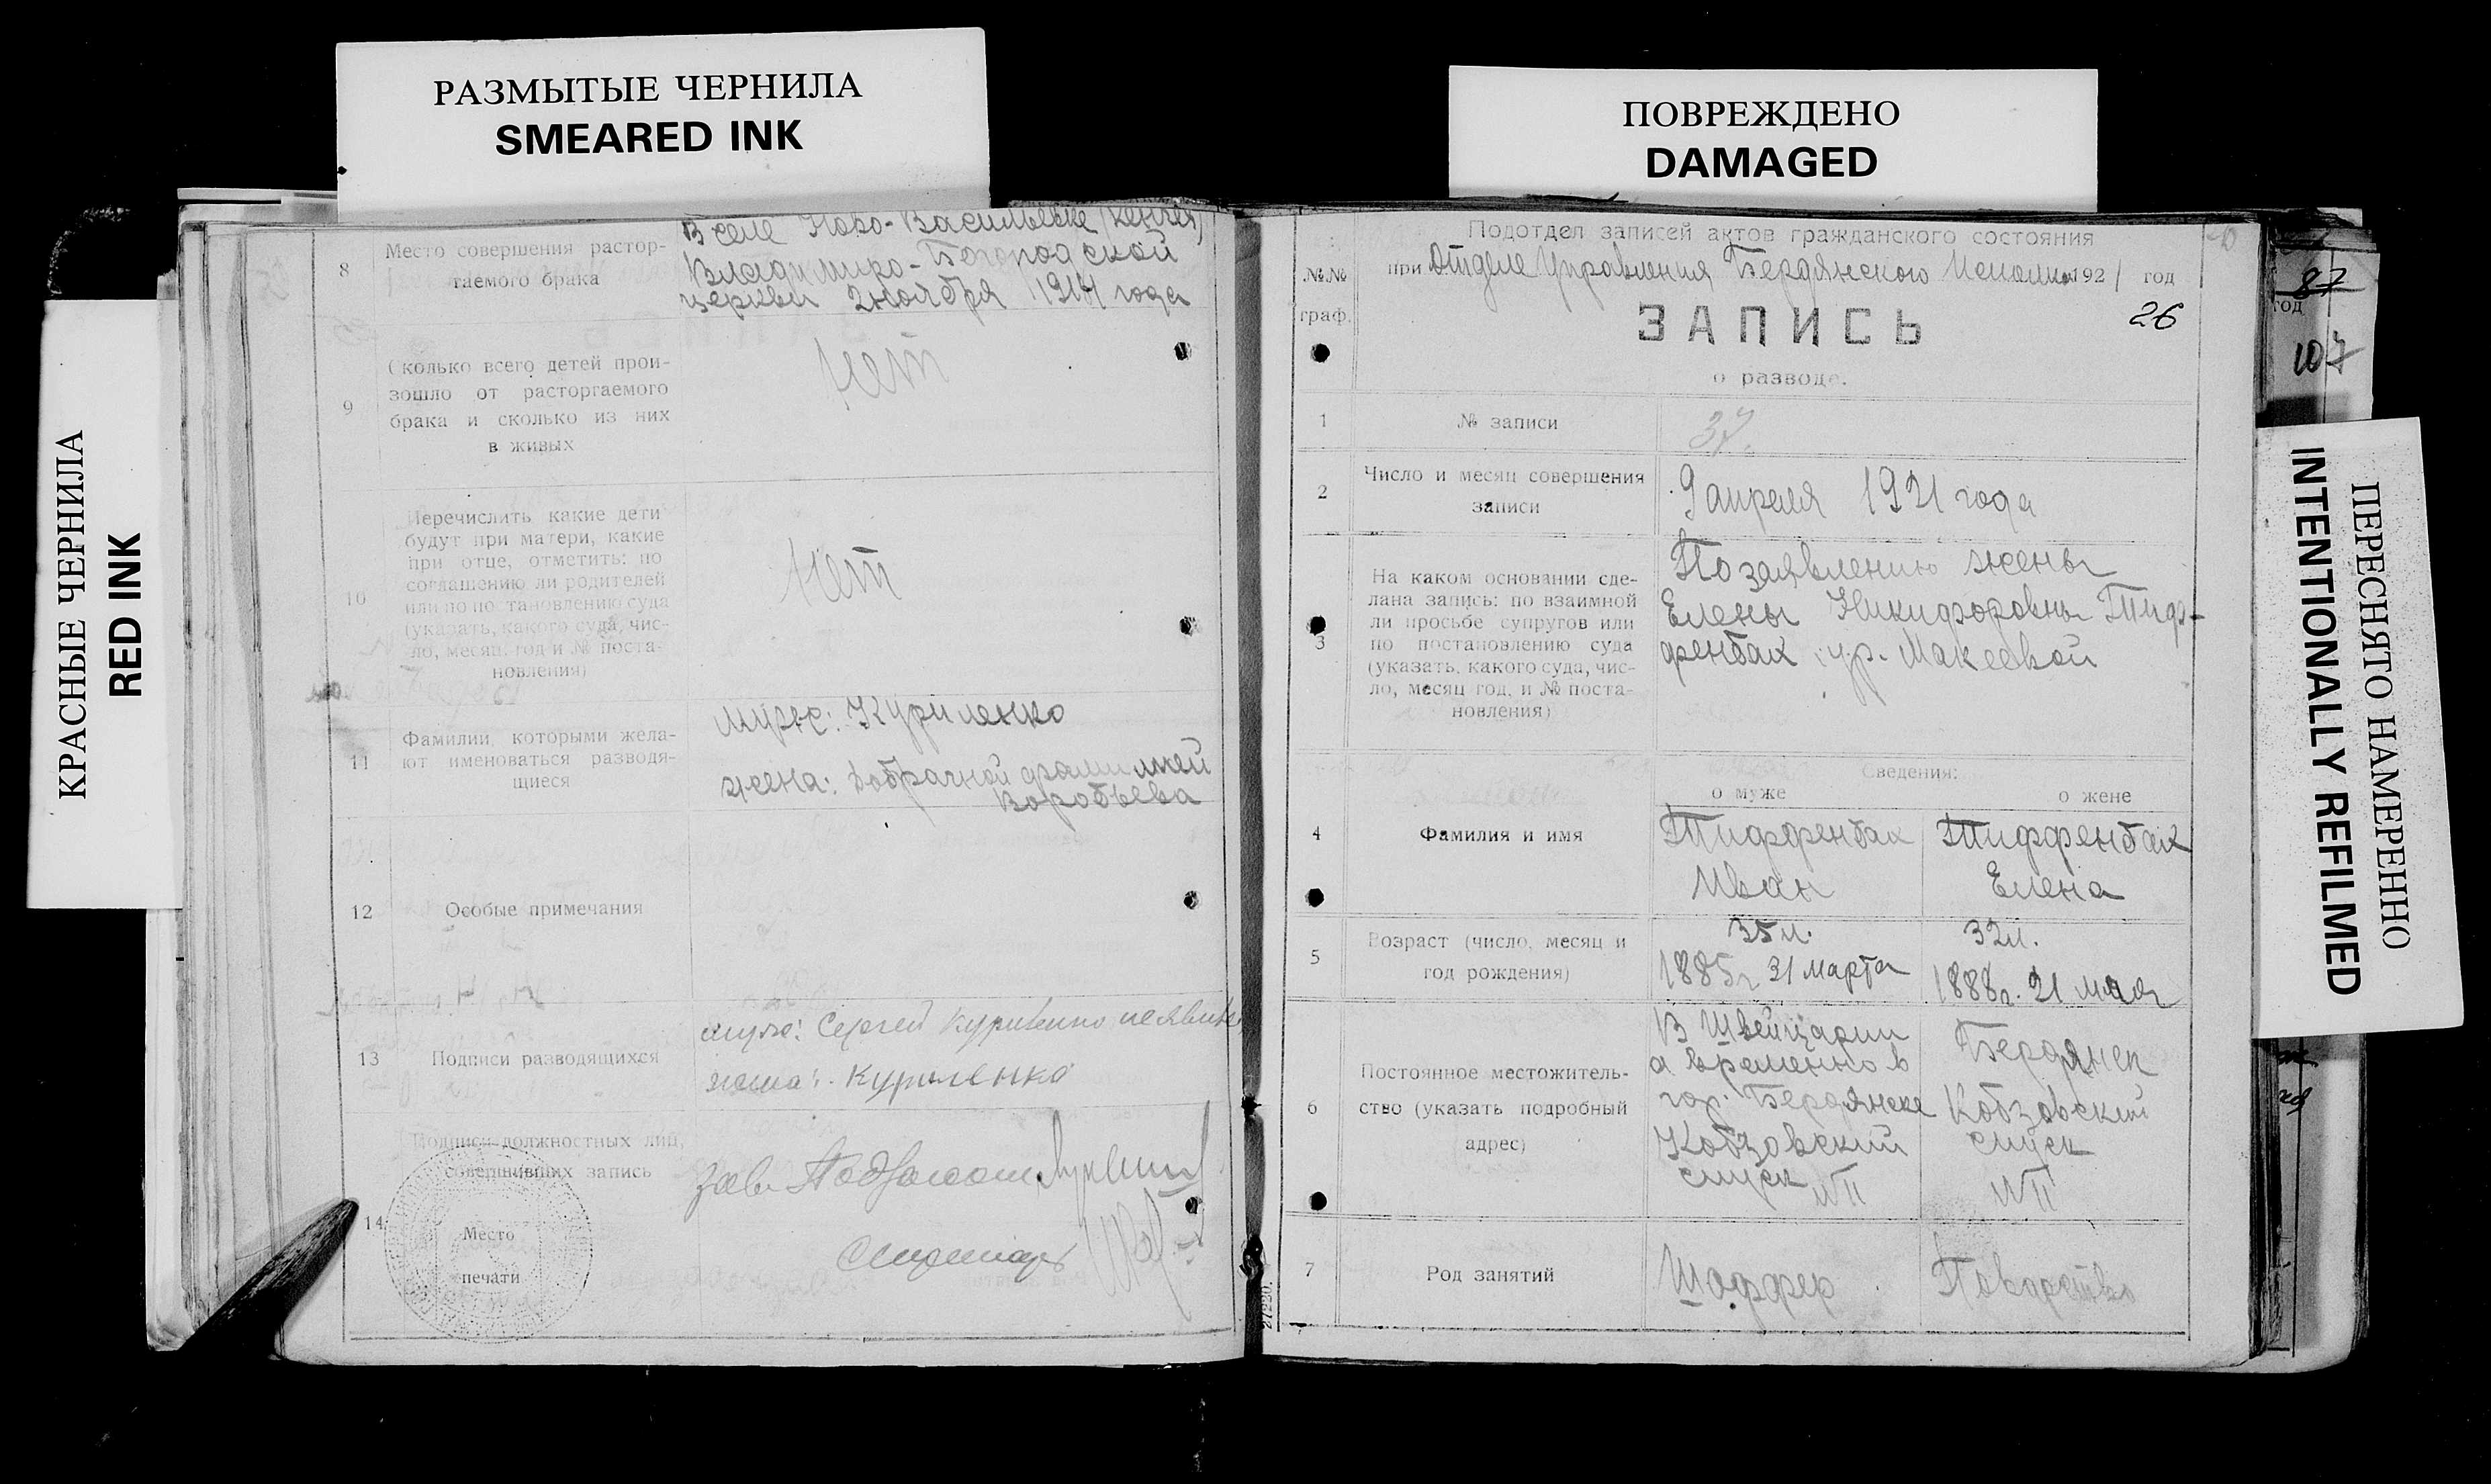 РАЗМЫТЫЕ ЧЕРНИЛА
SMEARED INK
ПОВРЕЖДЕНО
DAMAGED
КРАСНЫЕ ЧЕРНИЛА
RED INK
8
Место совершения растор-
гаемого брака
В селе Ново-Васильевке
Владимиро-Богородской
церкви 2 ноября 1914 года
9
Сколько всего детей прои-
зошло от расторгаемого
брака и сколько из них
в живых
Нет
10
Перечислить какие дети
будут при матери, какие
при отце, отметить: по
соглашению ли родителей
или по постановлению суда
(указать, какого суда, чис-
ло, месяц, год и № поста-
новления)
Нет
11
Фамилии, которыми жела-
ют именоваться разводя-
щиеся
муж: Куриленко
жена: добрачной фамилией
Воробьева
12
Особые примечания
13
Подписи разводящихся
муж: Сергей Куриленко неявился
жена: Куриленко
14
Подписи должностных лиц,
совершивших запись
Место
печати
Зав.
Секретарь
№№
граф.
Подотдел записей актов гражданского состояния
при Отделе Управления Бердянского Исполкома 1921 год
26
ЗАПИСЬ
о разводе.
1
№ записи
37.
2
Число и месяц совершения
записи
9 апреля 1921 года
3
На каком основании сде-
лана запись: по взаимной
ли просьбе супругов или
по постановлению суда
(указать, какого суда, чис-
ло, месяц год, и № поста-
новления)
По заявлению жены
Елены Никифоровны Тиф-
фенбах ур. Макеевой
Сведения:
о муже
о жене
4
Фамилия и имя
Тиффенбах
Иван
Тиффенбах
Елена
5
Возраст (число, месяц и
год рождения)
35 л.
1885 г 31 марта
32 л.
1888 г. 21 мая
6
Постоянное местожитель-
ство (указать подробный
адрес)
В Швейцарии
а временно в
гор. Бердянске
Кобзовский
спуск №11
Бердянск
Кобзовский
спуск
№11
7
Род занятий
Шоффер
Поварство
27220.
87
год
107
ПЕРЕСНЯТО НАМЕРЕННО
INTENTIONALLY REFILMED